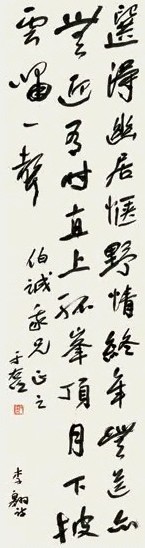 選得幽居愜野情終年無送亦
無迎有時直上孤峯頂月下披
雲嘯一聲
伯誠我兄正之
于右任
李翱詩